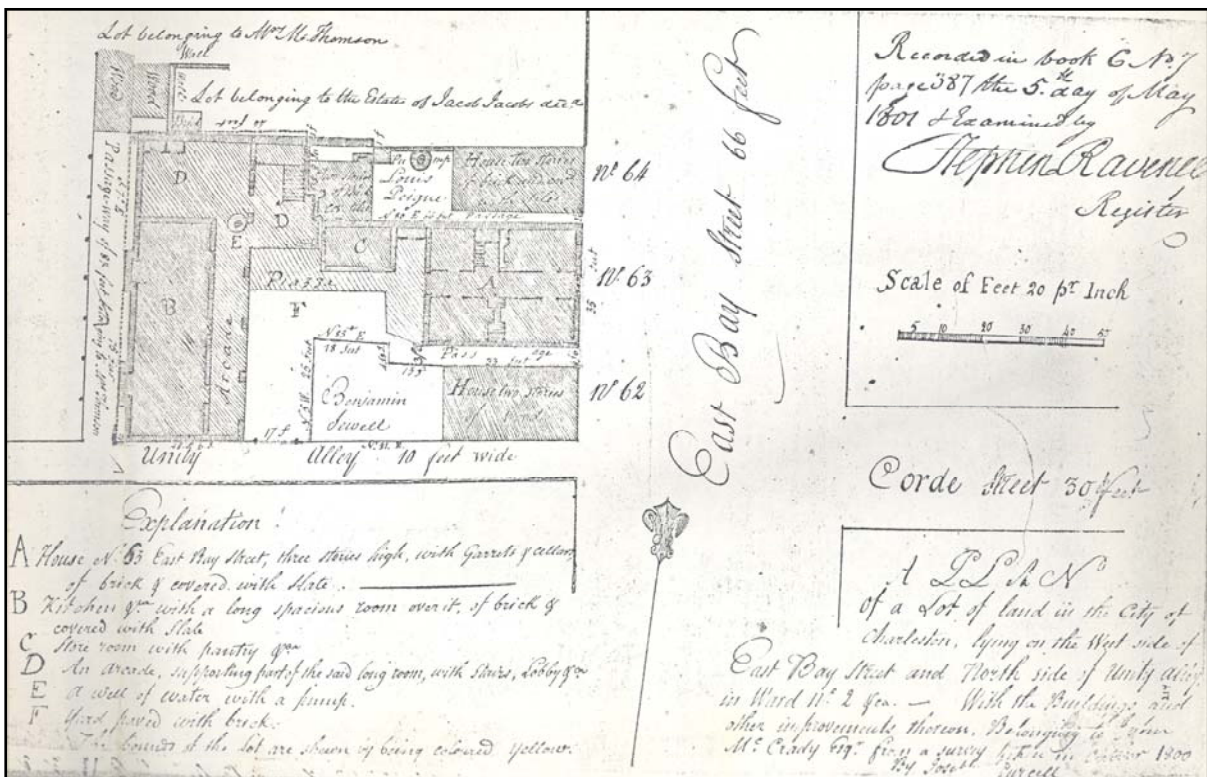 Lot belonging to Mr. M. Thomson
Well
Wood
Lot belonging to the Estate of Jacob Jacobs decd.
Passageway of
D
D
E
B
Arcade
Piazza
F
C
A
Pump
Louis
Peigne
House two stories
Passage
No. 64
No. 63
No. 62
35 feet
Pass age
33 feet
N 85° E
18 feet
Benjamin
Sewell
House two stories
17 f
Unity Alley 10 feet wide
East Bay Street 66 feet
Recorded in book G No. 7
page 387 the 5th day of May
1801 & Examined by
Stephen Ravenel
Register
Scale of Feet 20 pr Inch
5 10 20 30 40 50
Corde Street 30 feet
Explanation:
A House No. 63 East Bay Street, three stories high, with Garrets & cellars
of brick & covered with Slate.
B Kitchen &ca with a long spacious room over it, of brick &
covered with Slate
C Store room with pantry &ca
D An arcade, supporting part of the said long room, with Stairs, Lobby &ca
E a well of water with a pump.
F Yard paved with brick.
The bounds of the lot are shewn by being coloured yellow.
A PLAN
of a Lot of land in the City of
Charleston, lying on the West side of
East Bay Street and North side of Unity alley
in Ward No. 2 &ca. — With the Buildings and
other improvements thereon, Belonging to
McCrady Esqr. from a survey taken in October 1800
By Joseph Purcell